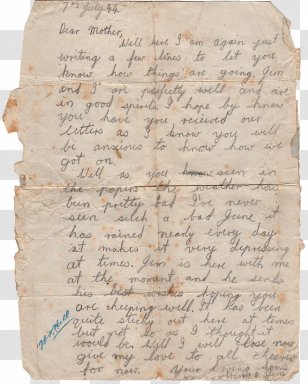 7th July 44
Dear Mother,
Well here I am again just
writing a few lines to let you
know how things are going, Jim
and I are perfectly well and are
in good spirits I hope by know
you have you received our
letters as I know you will
be anxious to know how we
got on.
Well as you know seen in
the papers the weather has
been pretty bad I've never
seen such a bad June it
has rained nearly every day
it makes it very depressing
at times. Jim is here with me
at the moment and he sends
his best wishes hoping you
are keeping well. It has been
quite sticky out here at times
but not so as I thought it
would be. Well I will close now
give my love to all cheerio
for now. Your loving Son